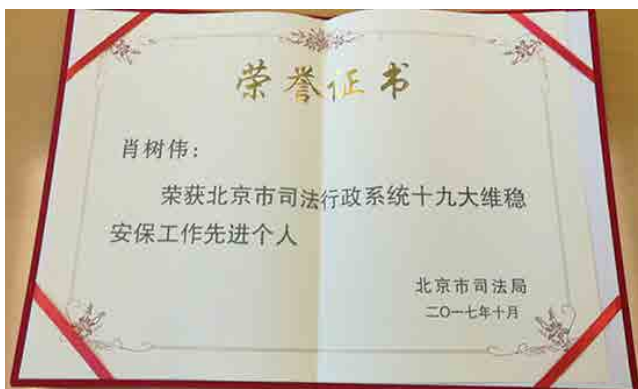 荣誉证书
肖树伟：
荣获北京市司法行政系统十九大维稳
安保工作先进个人
北京市司法局
二〇一七年十月